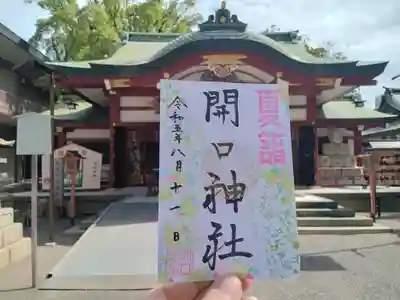 夏詣
開口神社
令和五年八月十一日